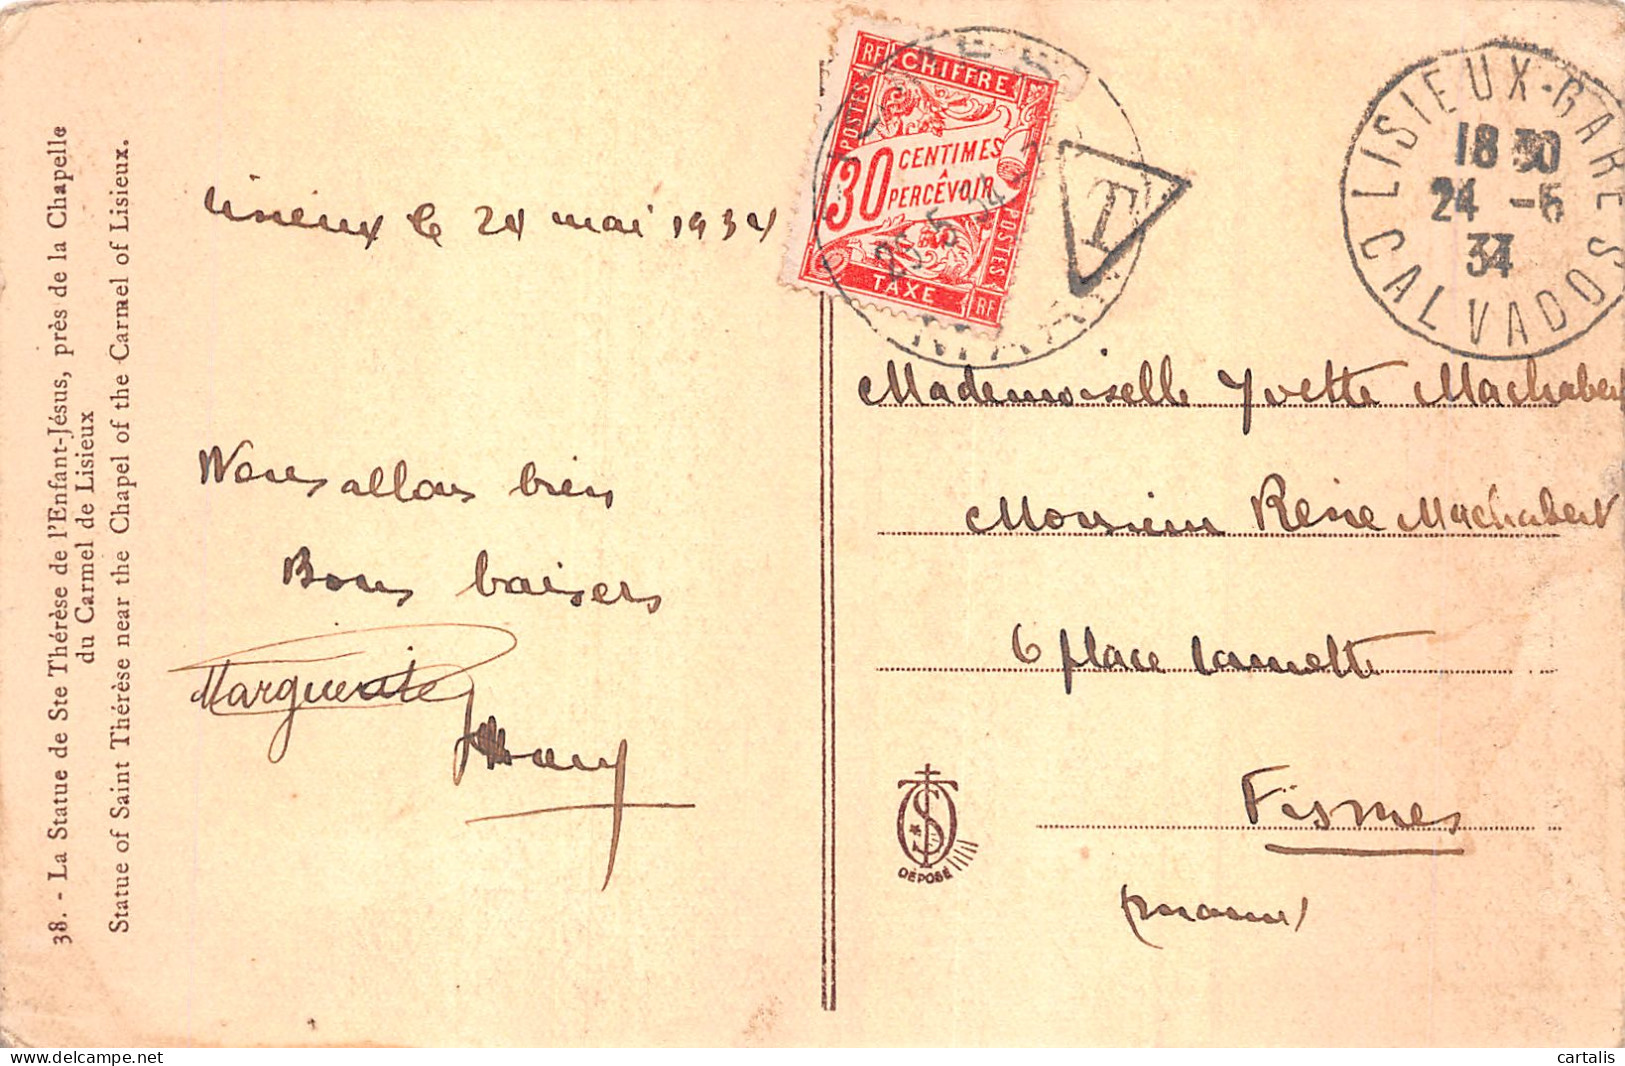 38. - La Statue de Ste Thérèse de l'Enfant-Jésus, près de la Chapelle
du Carmel de Lisieux
Statue of Saint Thérèse near the Chapel of the Carmel of Lisieux.
Lisieux le 24 mai 1934
Nous allons bien
Bons baisers
Marguerite
RF CHIFFRE
POSTES
30 CENTIMES
A
PERCEVOIR
POSTES
TAXE RF
25 -5 34
MAR
T
LISIEUX-GARE
18 30
24 -5
34
CALVADOS
Mademoiselle Yvette Machabert
Monsieur René Machabert
6 place Lamotte
Fismes
(Marne)
DÉPOSÉ
cartalis